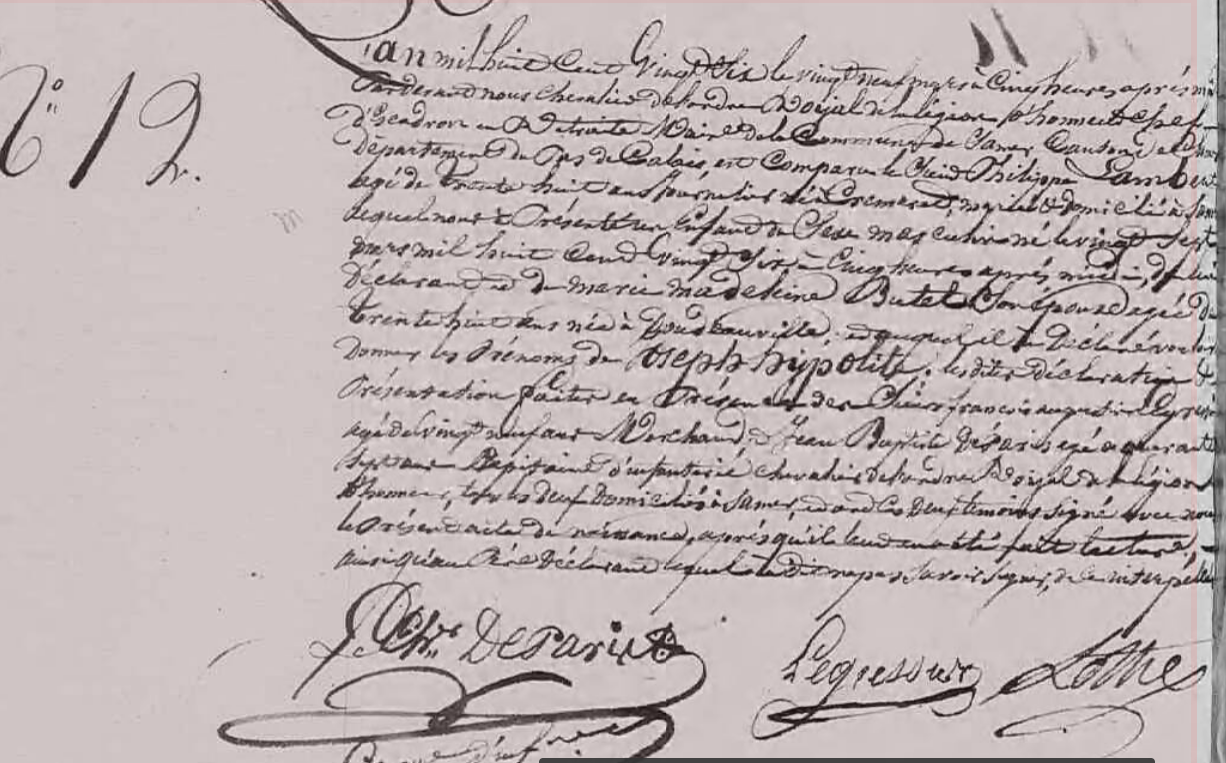 N° 12.
L'an mil huit Cent Vingt Six le vingt neuf mars à Cinq heures après mi
Pardevant nous Chevalier de L'ordre Roijal de la légion d'honneur Chef
D'Escadron en Retraite Maire de la Commune de Samer Canton
Département du Pas de Calais, est Comparu le Sieur Philippe Lambert
agé de trente huit ans Journalier né à Cremarest, marié & domicilié à Sam
lequel nous à Présenté un Enfant du Sexe masculin né le vingt Sept
mars mil huit Cent vingt Six, à Cinq heures après midi, de lui
Déclarant et de marie madeleine Butel Son épouse agée de
trente huit ans née à Doudeauville, et auquel il a Déclaré vouloir
Donner les Prénoms de Joseph hypolite. les dites déclaration &
Présentation faites en Présence des Sieurs françois augustin Legressier
agé de vingt neuf ans Marchand, & Jean Baptiste Déparis agé de quarante
Sept ans Capitaine d'infanterie Chevalier de L'ordre Roijal de la légion
D'honneur, tous les deux Domiciliés à Samer, et ont les Deux temoins Signé avec nous
le Présent acte de naissance, après qu'il leur en a été fait lecture,
ainsi qu'au Père Déclarant lequel a dit ne pas Savoir Signer, de ce interpellé
DeParis Legressier Lothe